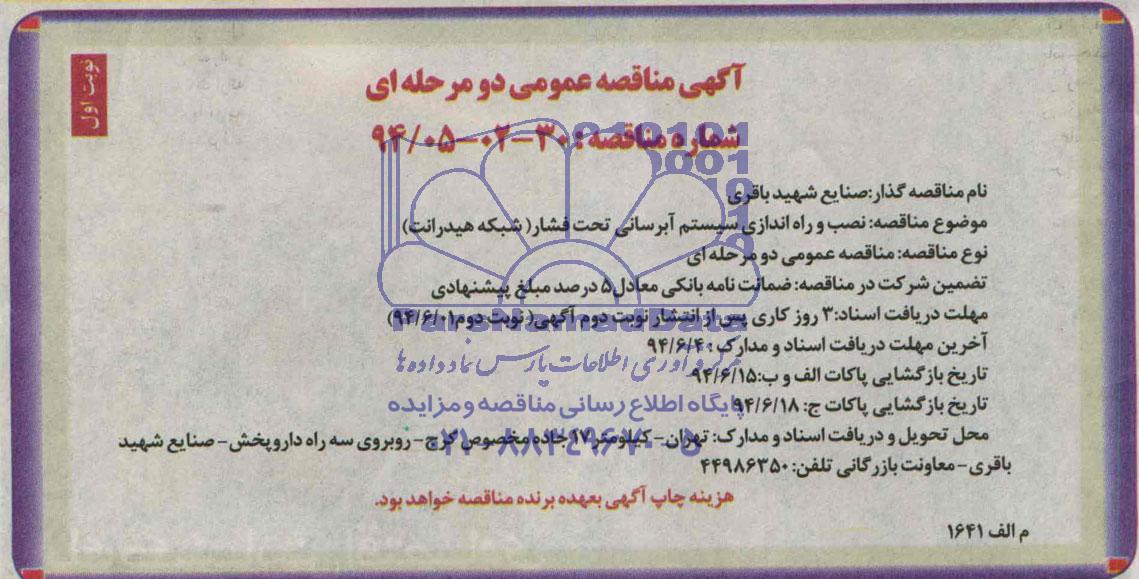 نوبت اول
آگهی مناقصه عمومی دو مرحله ای
شماره مناقصه: ۳۰-۰۲-۹۴/۰۵
نام مناقصه گذار:صنایع شهید باقری
موضوع مناقصه: نصب و راه اندازی سیستم آبرسانی تحت فشار( شبکه هیدرانت)
نوع مناقصه: مناقصه عمومی دو مرحله ای
تضمین شرکت در مناقصه: ضمانت نامه بانکی معادل ۵ درصد مبلغ پیشنهادی
مهلت دریافت اسناد:۳ روز کاری پس از انتشار نوبت دوم آگهی( نوبت دوم۹۴/۶/۰۱)
ParsNamadData
آخرین مهلت دریافت اسناد و مدارک: ۹۴/۶/۴
مرکز فرآوری اطلاعات پارس نماد داده ها
تاریخ بازگشایی پاکات الف و ب:۹۴/۶/۱۵
تاریخ بازگشایی پاکات ج: ۹۴/۶/۱۸
پایگاه اطلاع رسانی مناقصه و مزایده
محل تحویل و دریافت اسناد و مدارک: تهران- کیلومتر ۱۷ جاده مخصوص کرج- روبروی سه راه داروپخش- صنایع شهید
۰۲۱-۸۸۳۴۹۶۷۰-۵
باقری-معاونت بازرگانی تلفن: ۴۴۹۸۶۳۵۰
هزینه چاپ آگهی بعهده برنده مناقصه خواهد بود.
م الف ۱۶۴۱